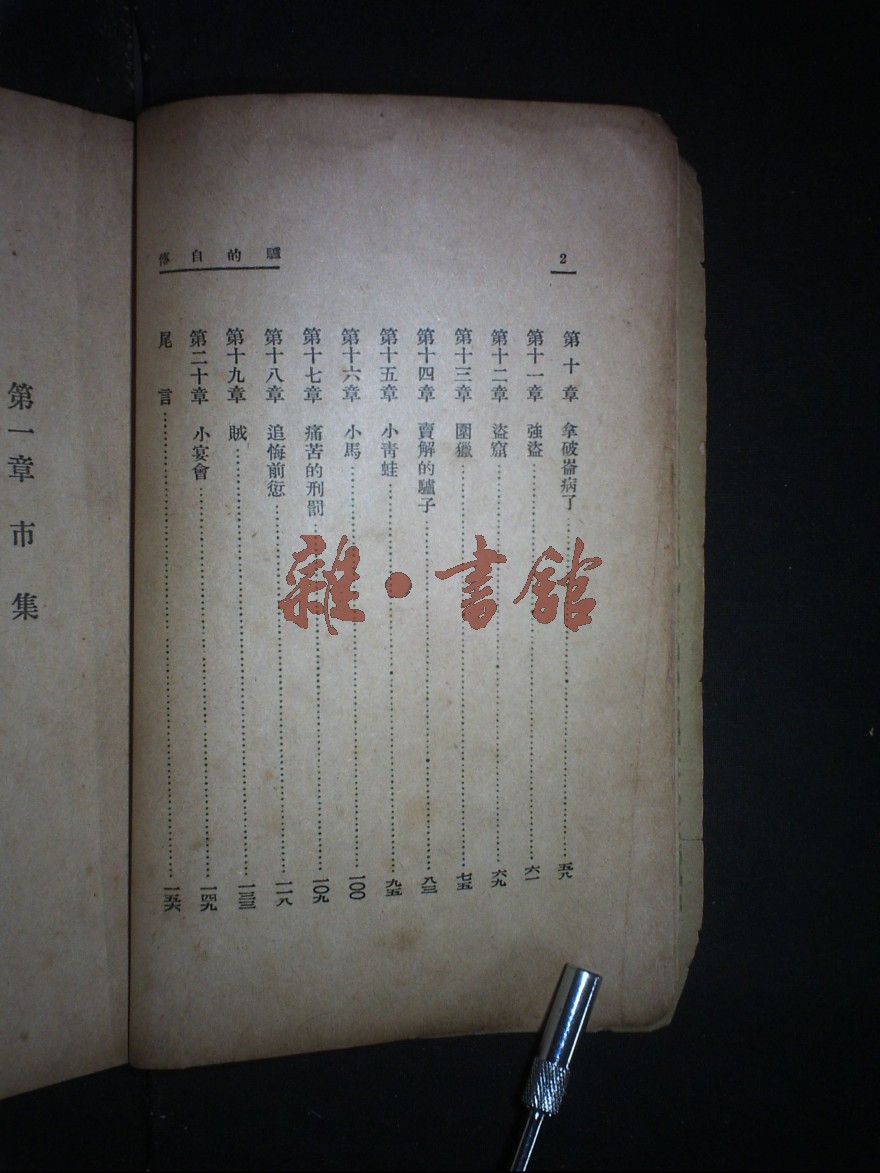 驢的自傳
2
第十章 拿破崙病了……五八
第十一章 強盜……六一
第十二章 盜窟……六九
第十三章 圍獵……七五
第十四章 賣解的驢子……八三
第十五章 小青蛙……九五
第十六章 小馬……一〇〇
第十七章 痛苦的刑罰……一〇九
第十八章 追悔前愆……一一八
第十九章 賊……一三三
第二十章 小宴會……一四九
尾言……一五六
第一章 市集
雜·書館